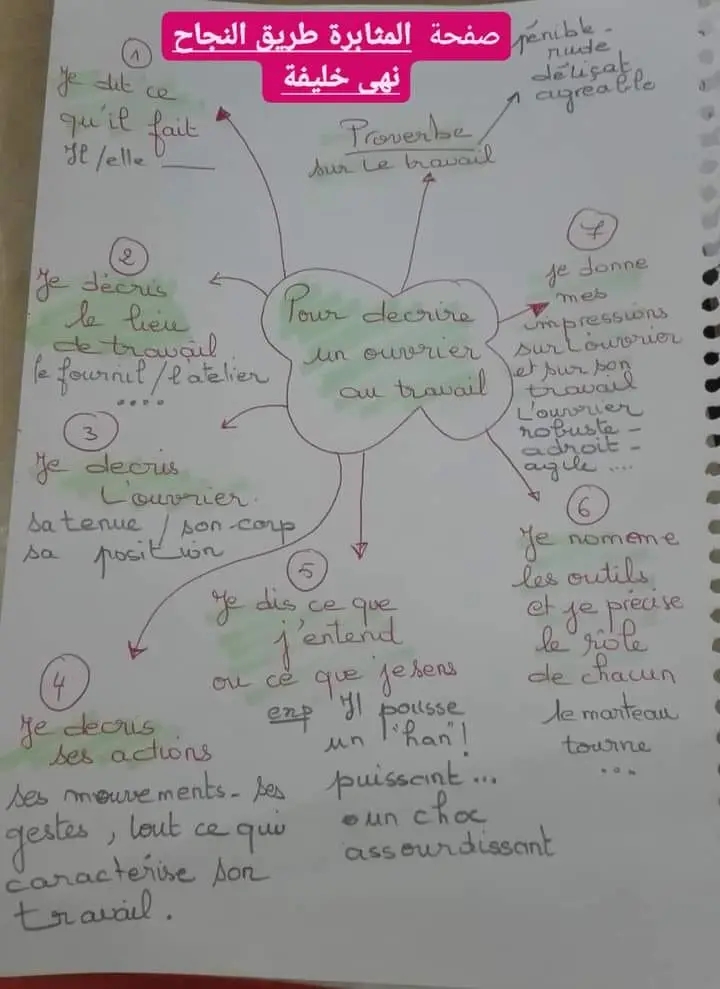 صفحة المثابرة طريق النجاح
نهى خليفة
pénible -
rude
délicat
agréable
Proverbe
sur le travail
1
Je dit ce
qu'il fait
Il/elle ____
2
Je décris
le lieu
de travail
le fournil/l'atelier
....
3
Je decris
L'ouvrier.
sa tenue / son corp
sa position
Pour decrire
un ouvrier
au travail
7
je donne
mes
impressions
sur L'ouvrier
et sur son
travail
L'ouvrier
robuste -
adroit -
agile ....
6
Je nomme
les outils
et je précise
le rôle
de chacun
le marteau
tourne
...
5
Je dis ce que
j'entend
ou ce que je sens
exp Il pousse
un "han"!
puissant ...
un choc
assourdissant
4
Je decris
ses actions
ses mouvements - ses
gestes, tout ce qui
caracterise son
travail.